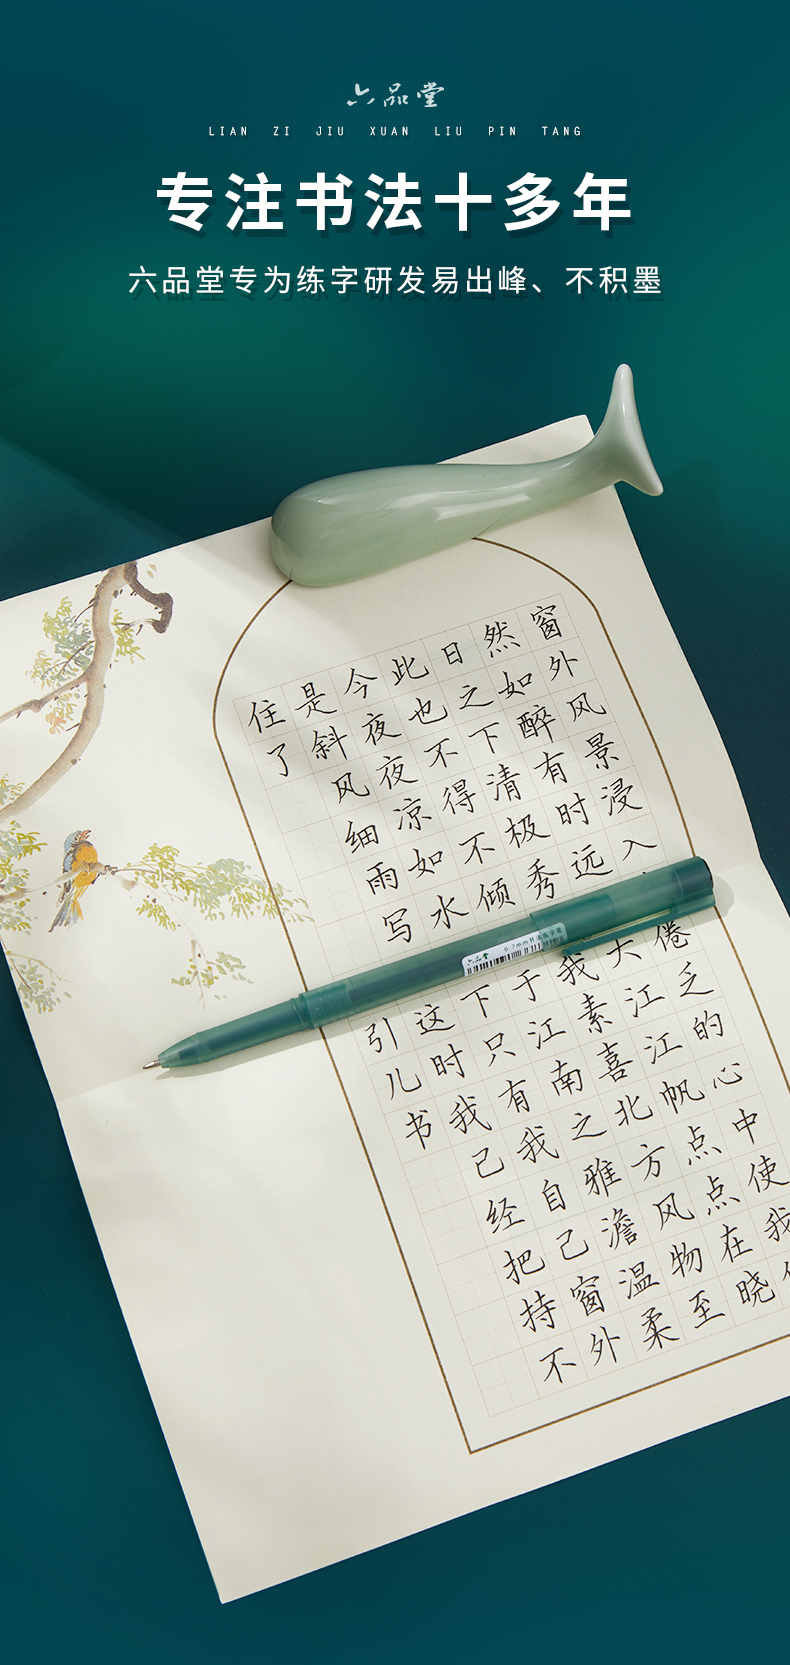 六品堂
LIAN ZI JIU XUAN LIU PIN TANG
专注书法十多年
六品堂专为练字研发易出峰、不积墨
窗外风景浸入
倦乏的心中使我
然如醉有时远
大江江帆点点在晓
日之下清极秀
我素喜北方风物至
此也不得不倾
于江南之雅澹温柔
今夜夜凉如水
下只有我自己窗外
是斜风细雨写
这时我己经把持不
住了
引儿书
六品堂
0.7mm